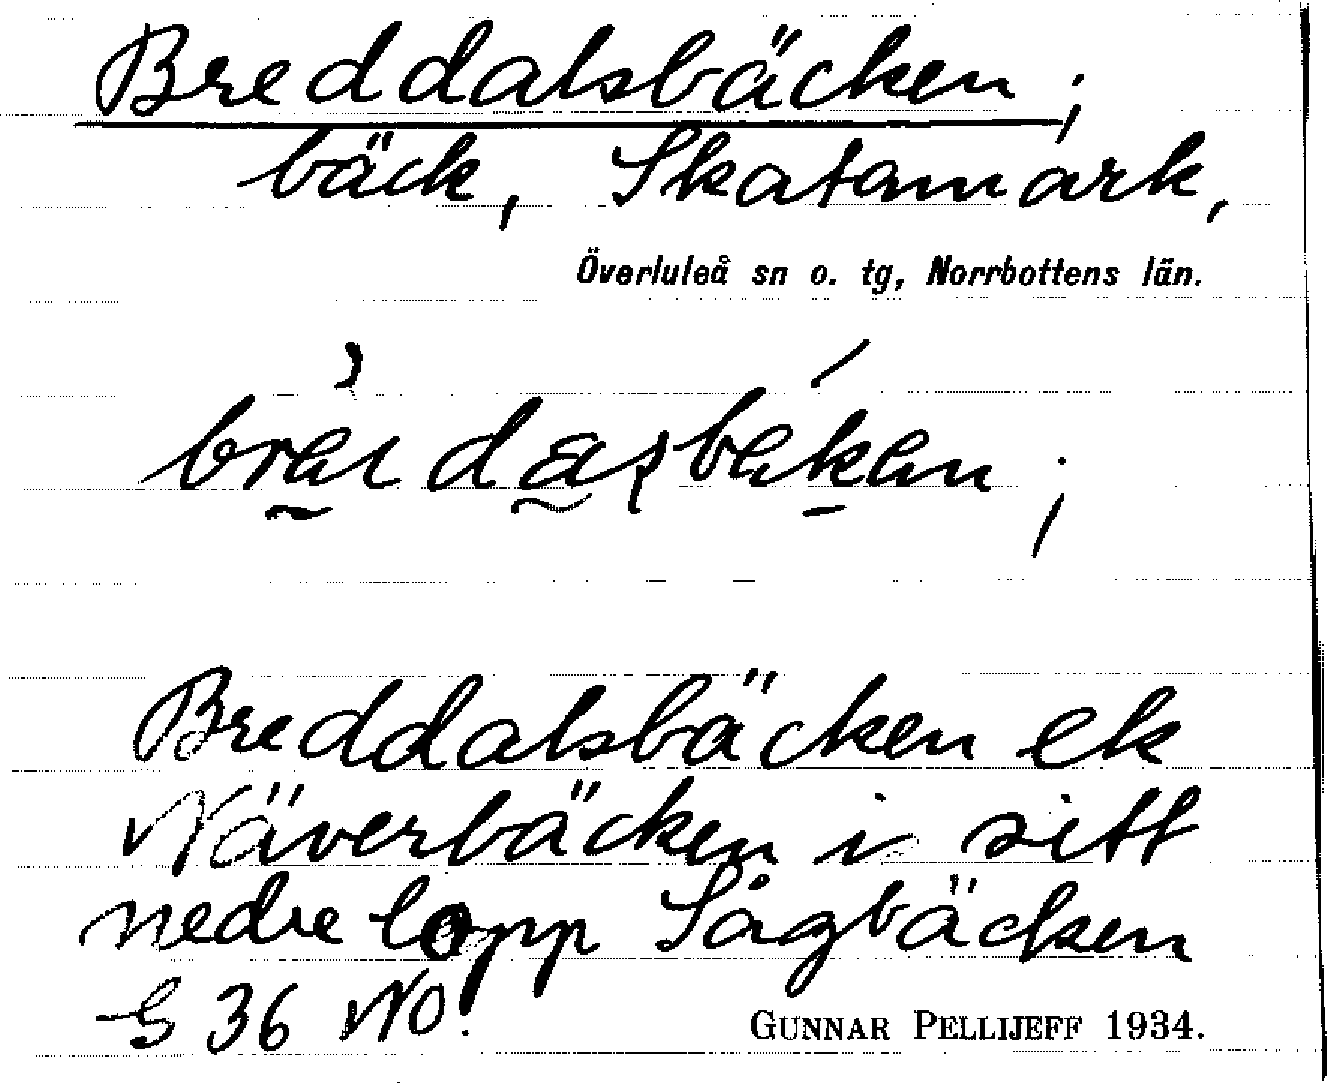 Breddalsbäcken;
bäck, Skatamark,
Överluleå sn o. tg, Norrbottens län.
Breddalsbäcken ek
Näverbäcken i sitt
nedre lopp Sågbäcken
G 36 NO!
GUNNAR PELLIJEFF 1934.